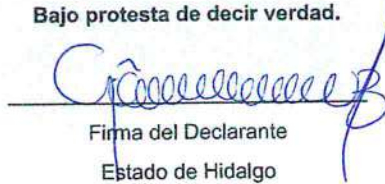 Bajo protesta de decir verdad.
Firma del Declarante
Estado de Hidalgo